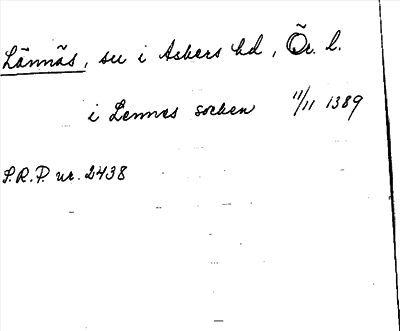 Lännäs, sn i Askers hd, Ör. l.
i Lennes socken 11/11 1389
S.R.P. nr. 2438